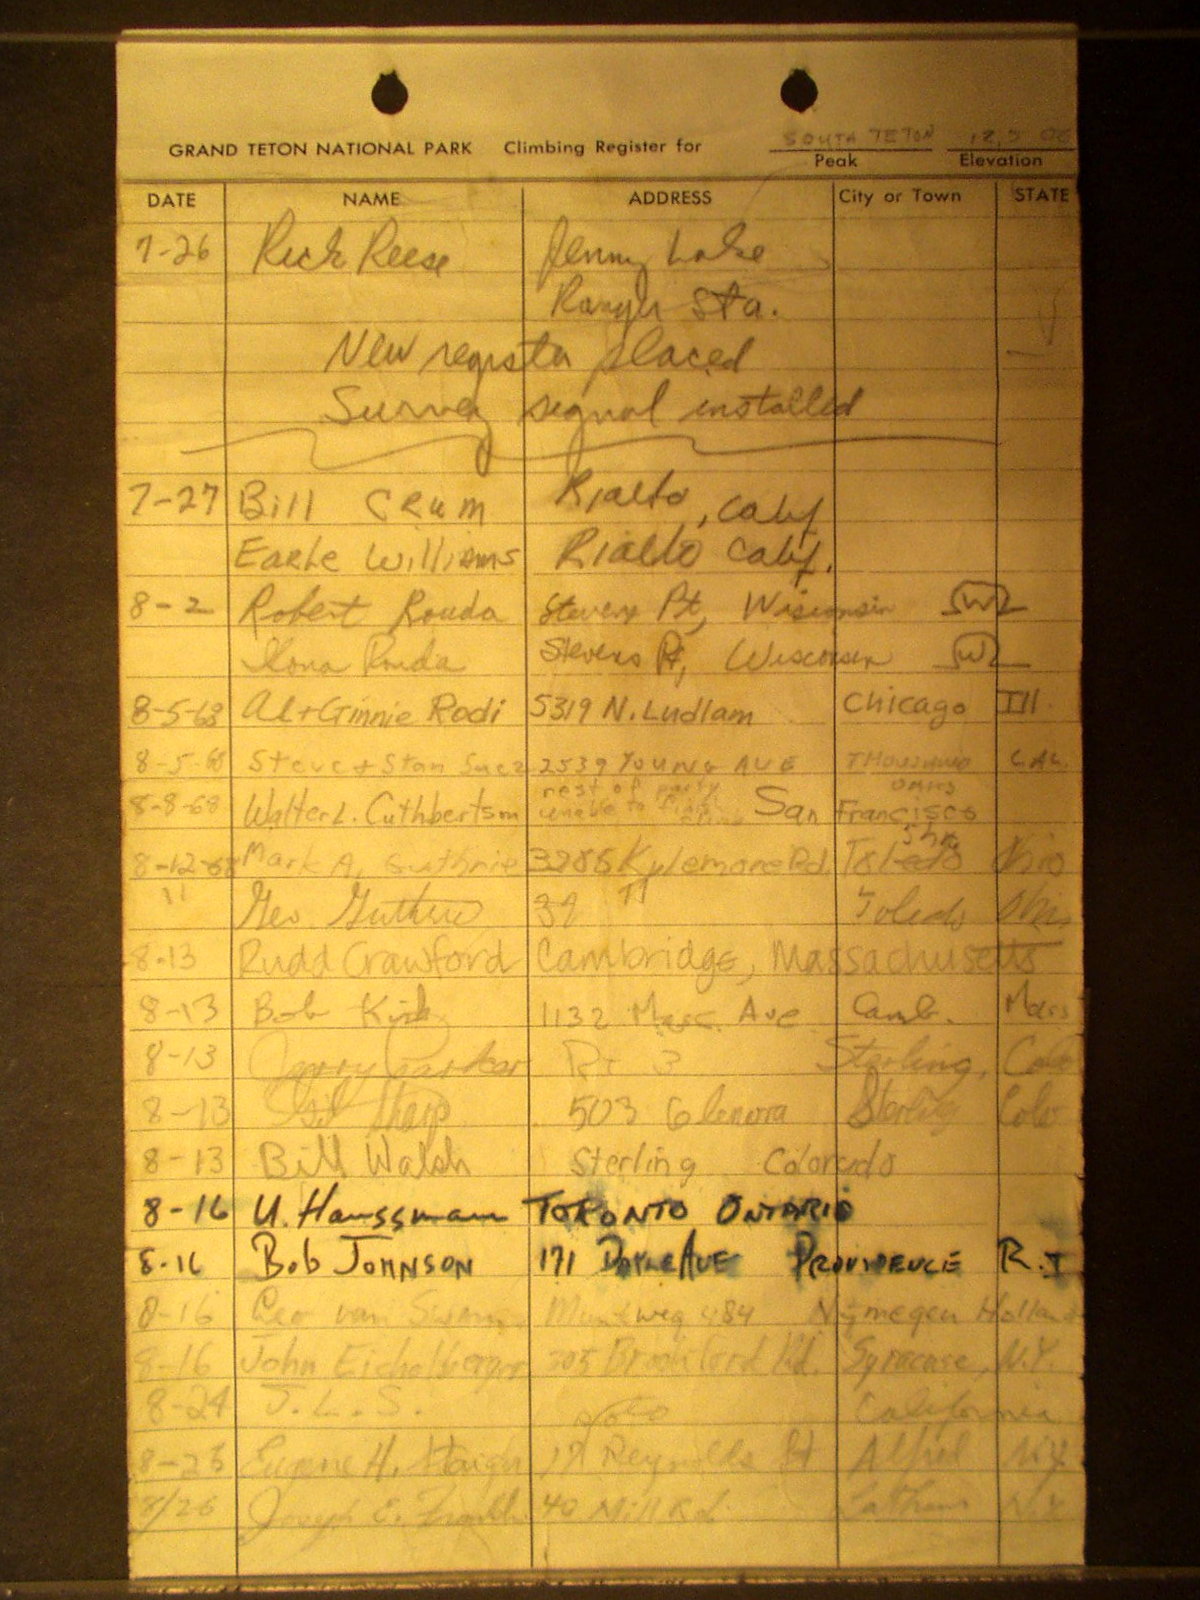 GRAND TETON NATIONAL PARK Climbing Register for SOUTH TETON
Peak Elevation
DATE NAME ADDRESS City or Town STATE
7-26 Rick Reese Jenny Lake
Ranger Sta.
New register placed
Survey signal installed
7-27 Bill CRUM Rialto, Calif
Earle Williams Rialto Calif.
8-2 Robert Rouda Stevens Pt, Wisconsin
Ilona Rouda Stevens Pt, Wisconsin
8-5-68 Al + Ginnie Rodi 5319 N. Ludlam Chicago Ill.
8-5-68 Steve + Stan 2539 YOUNG AVE THOUSAND CAL.
OAKS
rest of party
8-8-68 Walter L. Cuthbertson unable to San Francisco
5 hr
8-12-68 Mark A. Guthrie 3285 Kylemore Rd. Toledo Ohio
" Geo. Guthrie " Toledo Ohio
8-13 Rudd Crawford Cambridge, Massachusetts
8-13 Bob Kirk 1132 Mass. Ave Camb. Mass
8-13 Jerry Parker Rt 3 Sterling, Colo
8-13 Gil Sharp 503 Glenora Sterling Colo
8-13 Bill Walsh Sterling Colorado
8-16 U. Haussmann TORONTO ONTARIO
8-16 Bob JOHNSON 171 DOYLE AVE PROVIDENCE R.I
8-16 Leo van 484 Nijmegen Holland
8-16 John Eichelberger 305 Brookford Rd. Syracuse, N.Y.
8-24 J. L. S. California
8-25 Eugene H. 17 Reynolds St Alfred N.Y.
8/26 Joseph E. 40 Mill Rd. Latham N.Y.